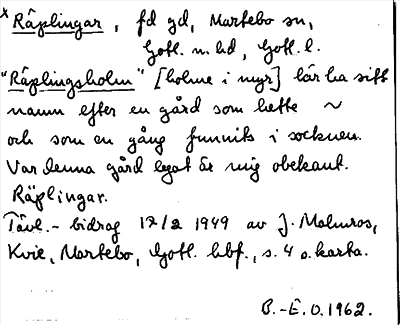 x Räplingar, fd gd, Martebo sn,
Gotl. n. hd, Gotl. l.
"Räplingsholm" [holme i myr] lär ha sitt
namn efter en gård som hette ~
och som en gång funnits i socknen.
Var denna gård legat är mig obekant.
Räplingar.
Tävl.- bidrag 12/2 1949 av J. Malmros,
Kvie, Martebo, Gotl. hbf., s. 4 o. karta.
B.-E.O. 1962.